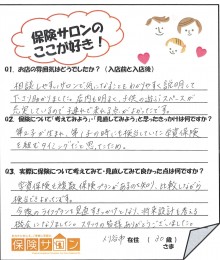 保険サロンの
ここが好き！
Q1. お店の雰囲気はどうでしたか？（入店前と入店後）
相談しやすいサロンで気になることもわかりやすく説明して
下さり助かりました。店内も明るく、子供の遊ぶスペースが
充実しているので子連れで来やすかったです。
Q2. 保険について「考えてみよう」・「見直してみよう」と思ったきっかけは何ですか？
第2子が生まれ、第1子の時にも検討していた学資保険
を組むタイミングだと思ったため。
Q3. 実際に保険について考えてみて・見直してみて良かった点は何ですか？
学資保険も複数保険プランがあるのを知り、比較しながら
検討できたことです。
今後のライフプランを見直すきっかけになり、将来設計を考える
機会になりました。スタッフの皆様ありがとうございました。
保険サロン
刈谷市 在住（30歳）
さま